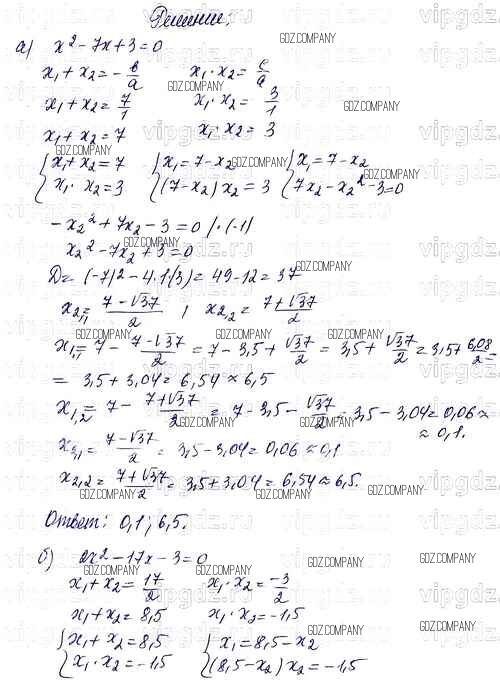 Решение.
а) x² - 7x + 3 = 0
x₁ + x₂ = - в/а   x₁ · x₂ = с/а
x₁ + x₂ = 7/1   x₁ · x₂ = 3/1
x₁ + x₂ = 7   x₁ · x₂ = 3
{ x₁ + x₂ = 7   { x₁ = 7 - x₂   { x₁ = 7 - x₂
{ x₁ · x₂ = 3   { (7 - x₂) x₂ = 3   { 7x₂ - x₂² - 3 = 0
- x₂² + 7x₂ - 3 = 0 | · (-1)
x₂² - 7x₂ + 3 = 0
D = (-7)² - 4 · 1 (3) = 49 - 12 = 37
x₂,₁ = (7 - √37)/2 ; x₂,₂ = (7 + √37)/2
x₁,₁ = 7 - (7 - √37)/2 = 7 - 3,5 + √37/2 = 3,5 + √37/2 = 3,5 + 6,08/2 =
= 3,5 + 3,04 = 6,54 ≈ 6,5
x₁,₂ = 7 - (7 + √37)/2 = 7 - 3,5 - √37/2 = 3,5 - 3,04 = 0,06 ≈
≈ 0,1.
x₂,₁ = (7 - √37)/2 = 3,5 - 3,04 = 0,06 ≈ 0,1
x₂,₂ = (7 + √37)/2 = 3,5 + 3,04 = 6,54 ≈ 6,5.
Ответ: 0,1; 6,5.
б) 2x² - 17x - 3 = 0
x₁ + x₂ = 17/2   x₁ · x₂ = -3/2
x₁ + x₂ = 8,5   x₁ · x₂ = -1,5
{ x₁ + x₂ = 8,5   { x₁ = 8,5 - x₂
{ x₁ · x₂ = -1,5   { (8,5 - x₂) x₂ = -1,5